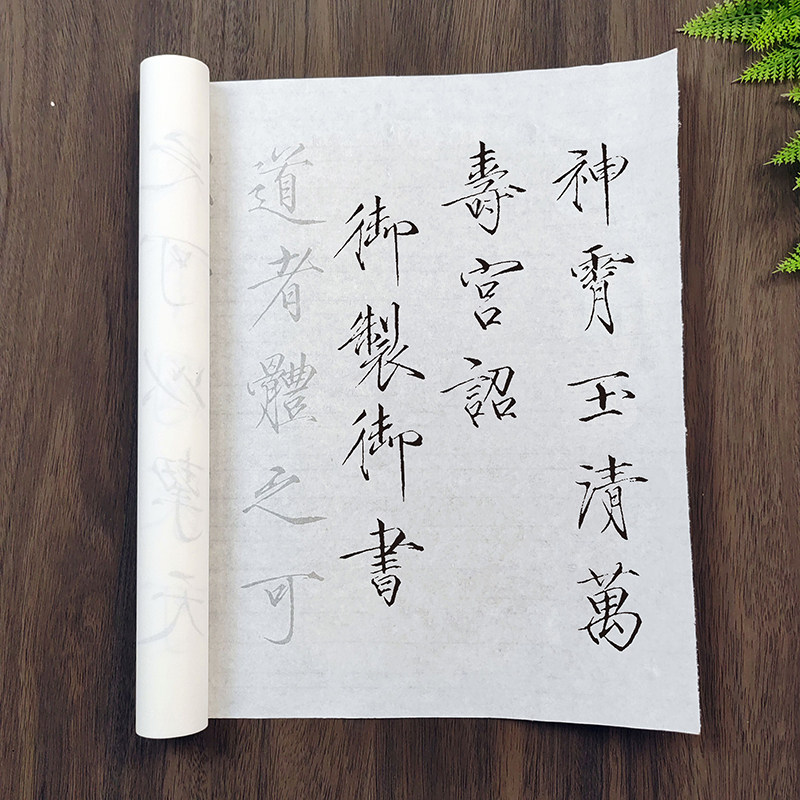 神霄玉清萬
壽宮詔
御製御書
道者體之可